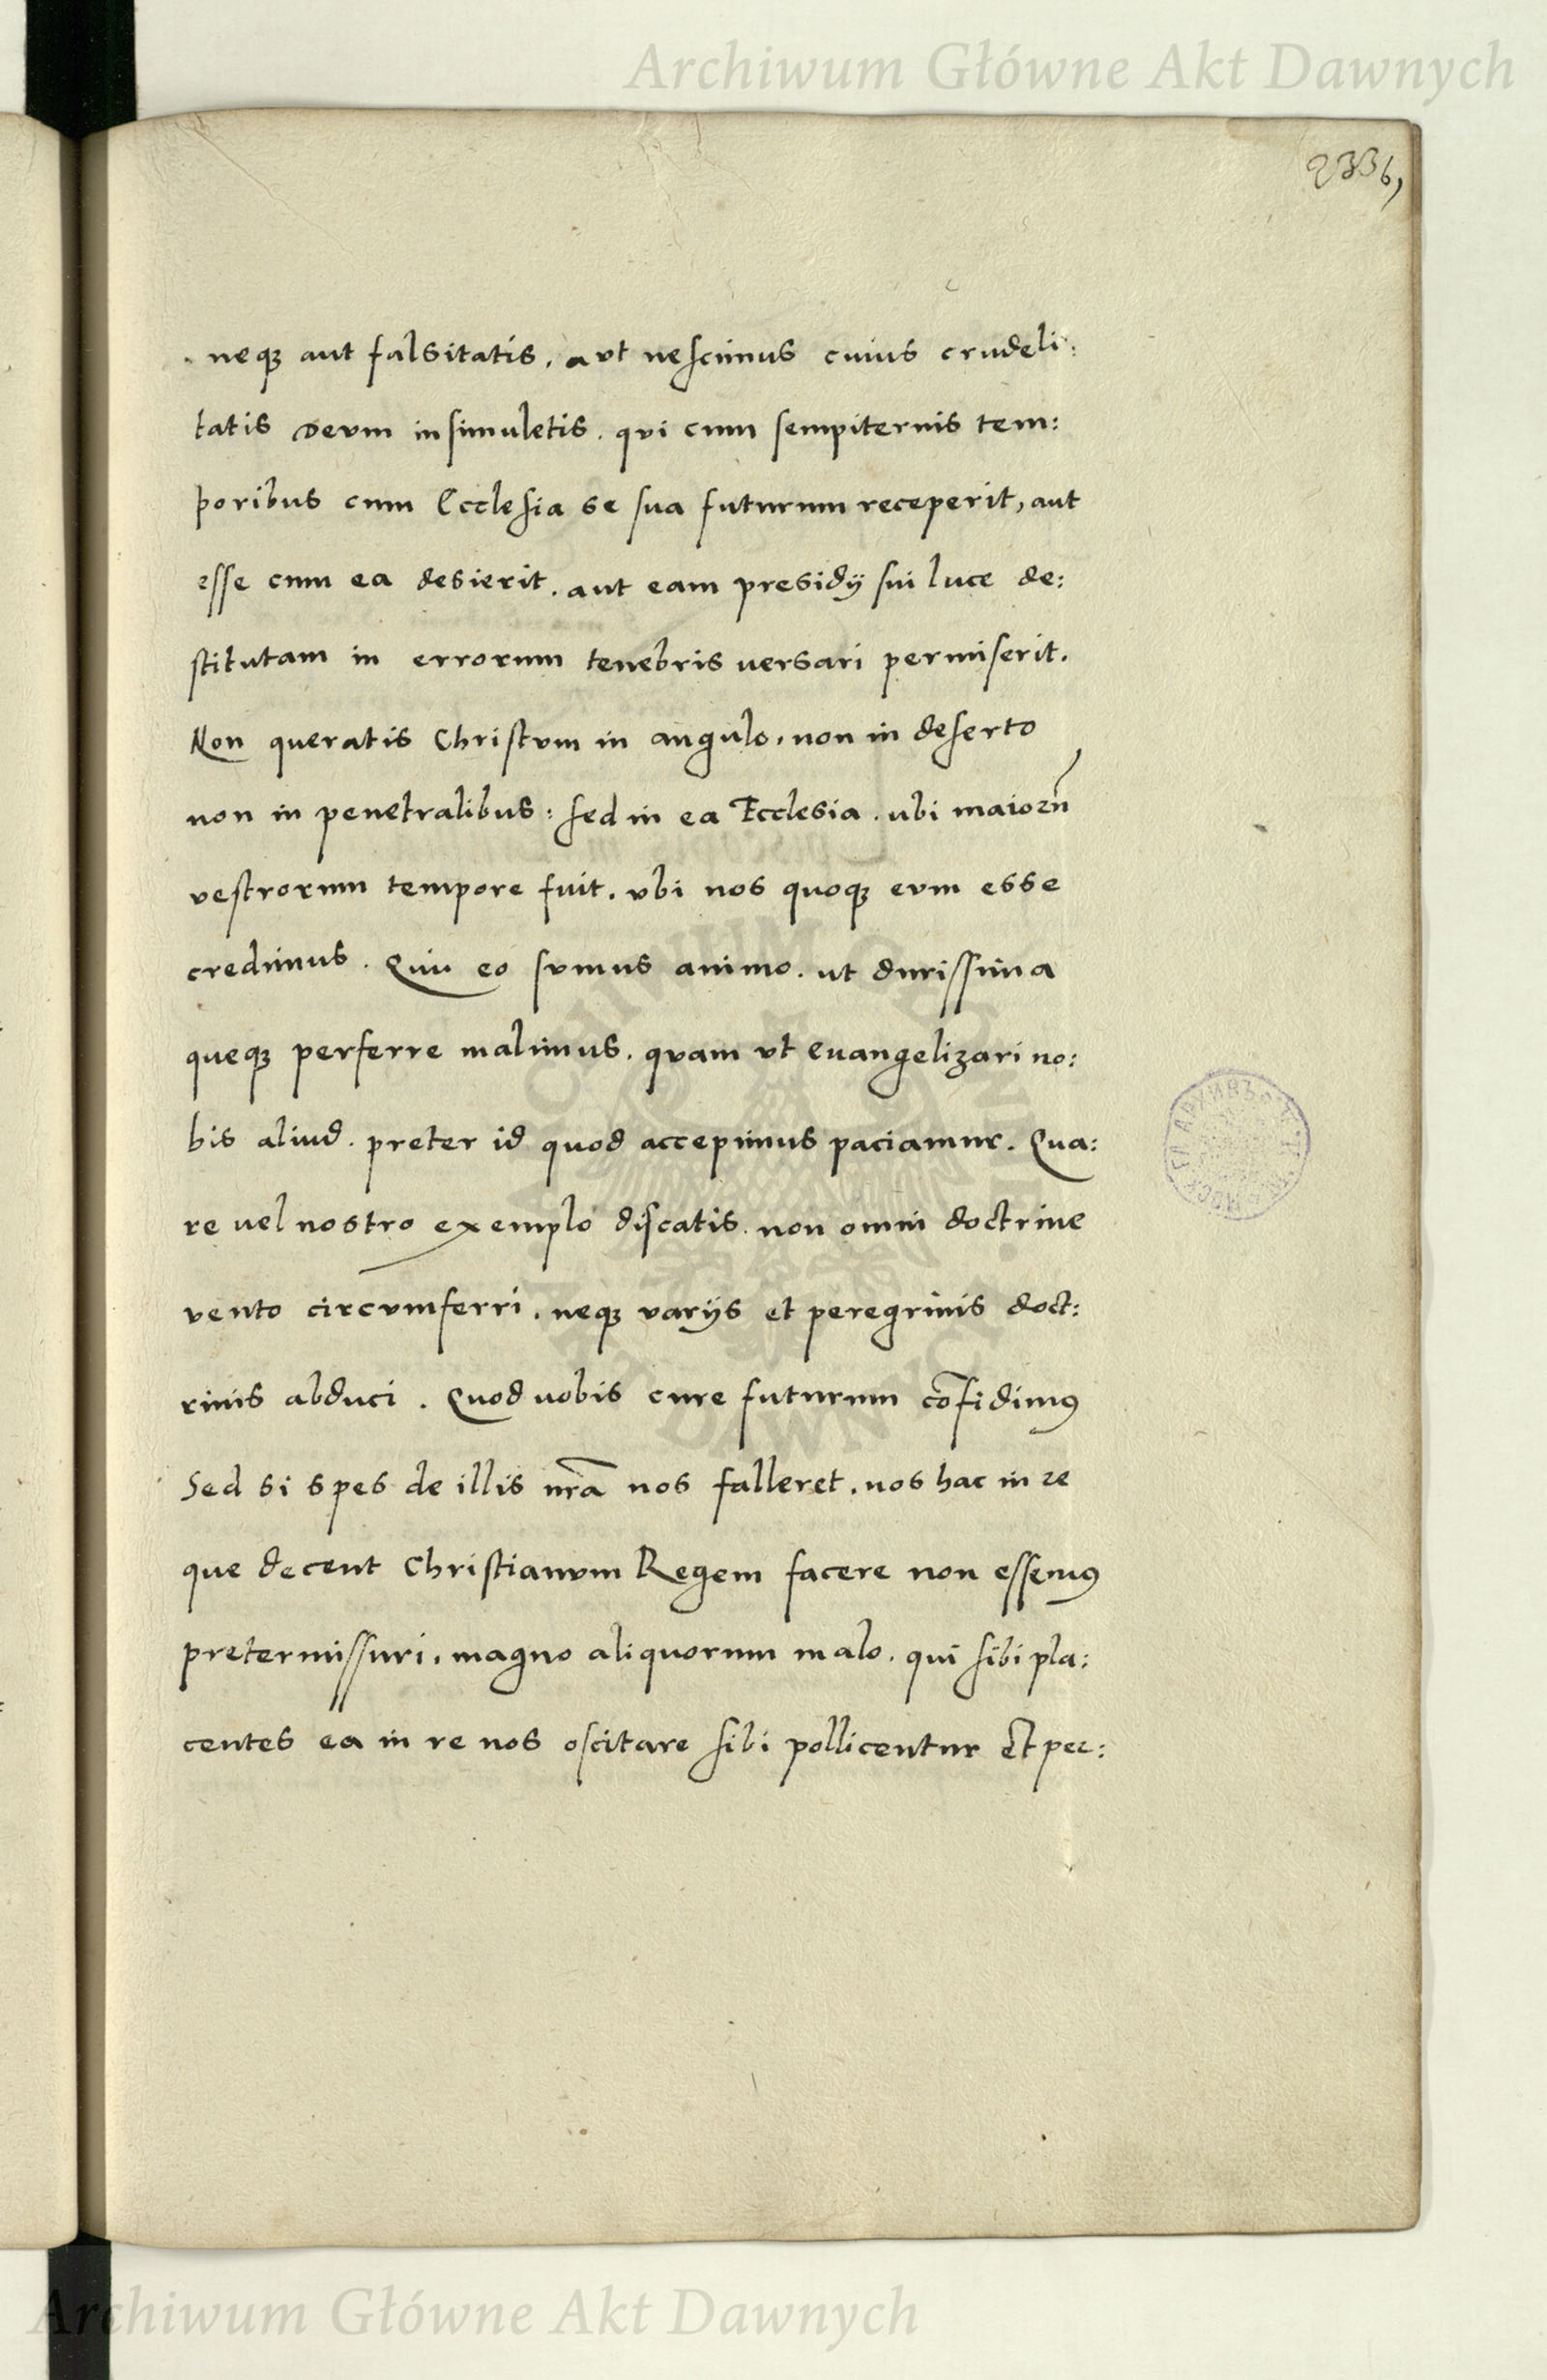 Archiwum Główne Akt Dawnych
2336
neqꝫ aut falsitatis. aut nescimus cuius crudeli:
tatis Deum insimuletis. qui cum sempiternis tem:
poribus cum Ecclesia se sua futurum receperit, aut
esse cum ea desierit. aut eam presidÿ sui luce de:
stitutam in errorum tenebris versari permiserit.
Non queratis Christum in angulo. non in deserto
non in penetralibus: sed in ea Ecclesia. ubi maiorū
vestrorum tempore fuit. vbi nos quoqꝫ eum esse
credimus. Quiu eo sumus animo. ut durissima
queqꝫ perferre malimus. quam ut euangelizari no:
bis aliud. preter id quod accepimus paciamur. Qua:
re uel nostro exemplo discatis. non omni doctrine
vento circumferri. neqꝫ varÿs et peregrinis doct:
rinis abduci. Quod uobis cure futurum cōfidimꝰ
Sed si spes de illis nr̄a nos falleret. nos hac in re
que decent Christianum Regem facere non essemꝰ
pretermissuri. magno aliquorum malo. qui sibi pla:
centes ea in re nos oscitare sibi pollicentur Et per:
Archiwum Główne Akt Dawnych